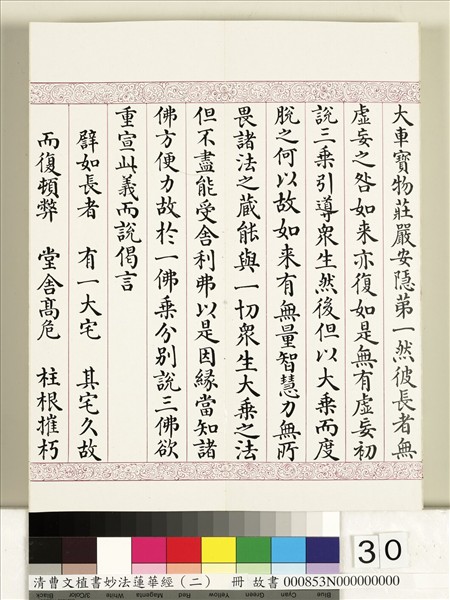 大車寶物莊嚴安隱第一然彼長者無
虛妄之咎如来亦復如是無有虛妄初
說三乘引導衆生然後但以大乘而度
脫之何以故如来有無量智慧力無所
畏諸法之藏能與一切衆生大乘之法
但不盡能受舍利弗以是因緣當知諸
佛方便力故於一佛乘分別說三佛欲
重宣此義而說偈言
譬如長者 有一大宅 其宅久故
而復頓弊 堂舍髙危 柱根摧朽
30
清曹文植書妙法蓮華經（二） 冊 故書 000853N000000000